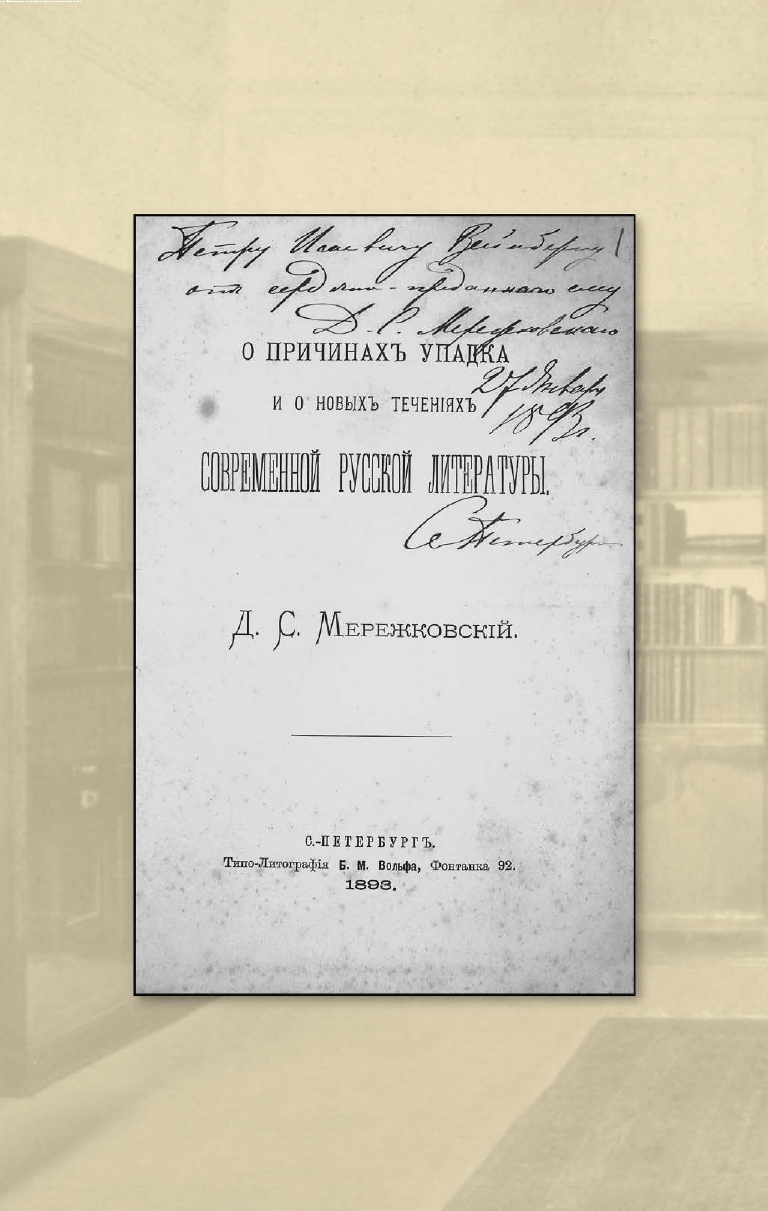 Петру Исаевичу Вейнбергу
отъ сердечно-преданнаго ему
Д. С. Мережковскаго
О ПРИЧИНАХЪ УПАДКА
27 Января
И О НОВЫХЪ ТЕЧЕНІЯХЪ
1893 г.
СОВРЕМЕННОЙ РУССКОЙ ЛИТЕРАТУРЫ.
С. Петербургъ
Д. С. МЕРЕЖКОВСКІЙ.
С.-ПЕТЕРБУРГЪ.
Типо-Литографія Б. М. Вольфа, Фонтанка 92.
1893.